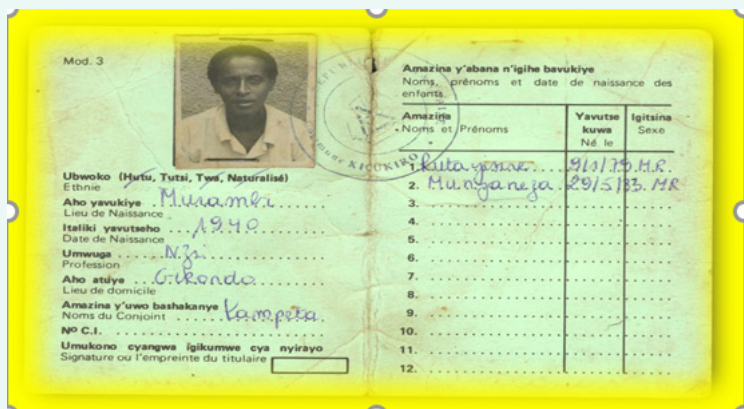 Mod. 3
Ubwoko (Hutu, Tutsi, Twa, Naturalisé)
Ethnie
Aho yavukiye Murambi
Lieu de Naissance
Italiki yavutseho 1940
Date de Naissance
Umwuga
Profession
Aho atuye Gikondo
Lieu de domicile
Amazina y'uwo bashakanye
Noms du Conjoint Kampera
Nº C.I.
Umukono cyangwa igikumwe cya nyirayo
Signature ou l'empreinte du titulaire
KICUKIRO
Amazina y'abana n'igihe bavukiye
Noms, prénoms et date de naissance des
enfants.
Amazina Yavutse Igitsina
Noms et Prénoms kuwa Sexe
Né le
1. Rutayisire 9/1/79 MR
2. Munyaneza 29/5/83 MR
3.
4.
5.
6.
7.
8.
9.
10.
11.
12.